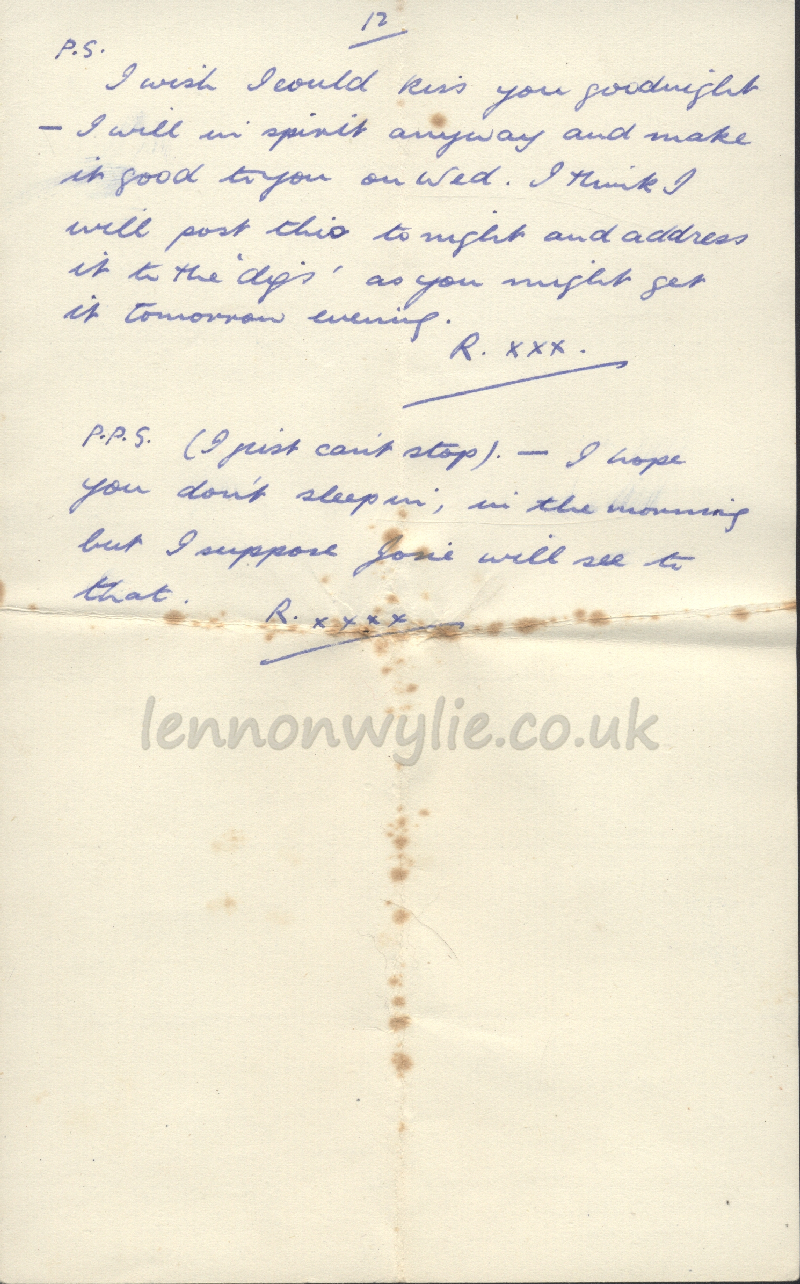 12
P.S.
I wish I could kiss you goodnight
– I will in spirit anyway and make
it good to you on Wed. I think I
will post this tonight and address
it to the 'digs' as you might get
it tomorrow evening.
R. xxx.
P.P.S. (I just can't stop). – I hope
you don't 'sleep in', in the morning
but I suppose Josie will see to
that.
R. xxxx
lennonwylie.co.uk